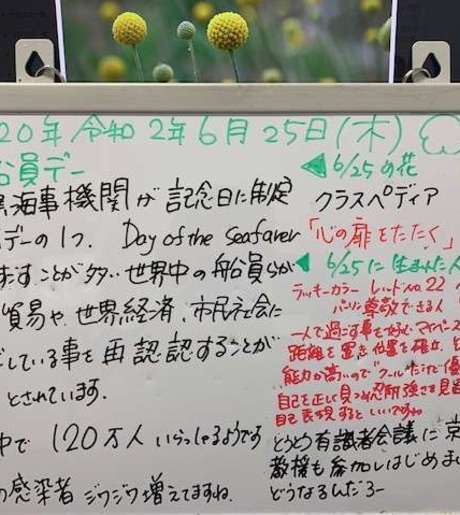 20年 令和2年6月25日(木)
船員デー
海事機関が記念日に制定
デーの1つ。 Day of the Seafarer
すことが多い世界中の船員らが
貿易や世界経済、市民社会に
している事を再認認することが
とされています。
中で 120万人 いらっしゃるようです
の感染者 ジワジワ増えてますね。
◀ 6/25の花
クラスペディア
「心の扉をたたく」
◀ 6/25に生まれた人
ラッキーカラー レッド No 22
尊敬できる人
一人で過す事を好むマイペース
距離を置き位置を確立
能力が高いので"クール"だけど優
自己を正しく見つめ忍耐強さも見
自己表現するといいですね
とうとう有識者会議に京
教授も参加しはじめま
どうなるんだろー